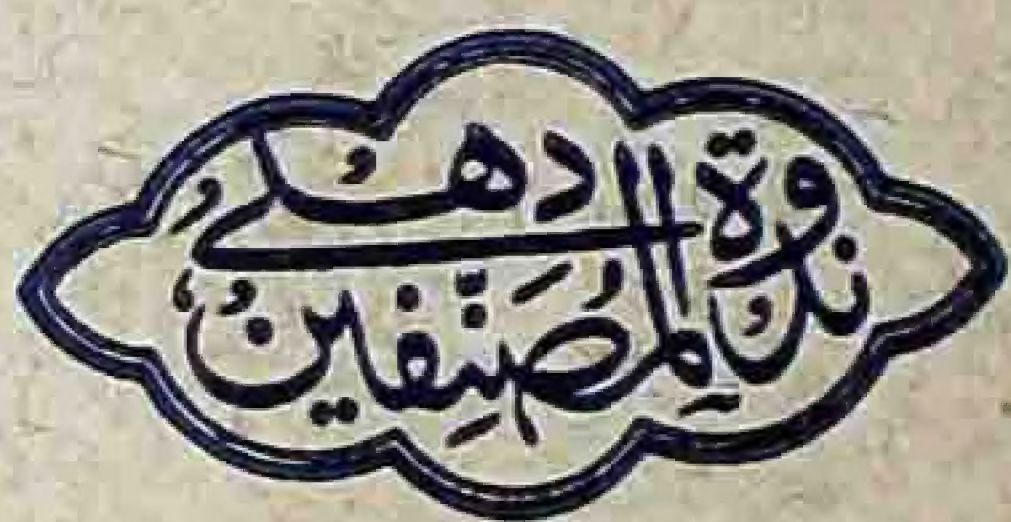 ندوۃ المصنفین دهلی